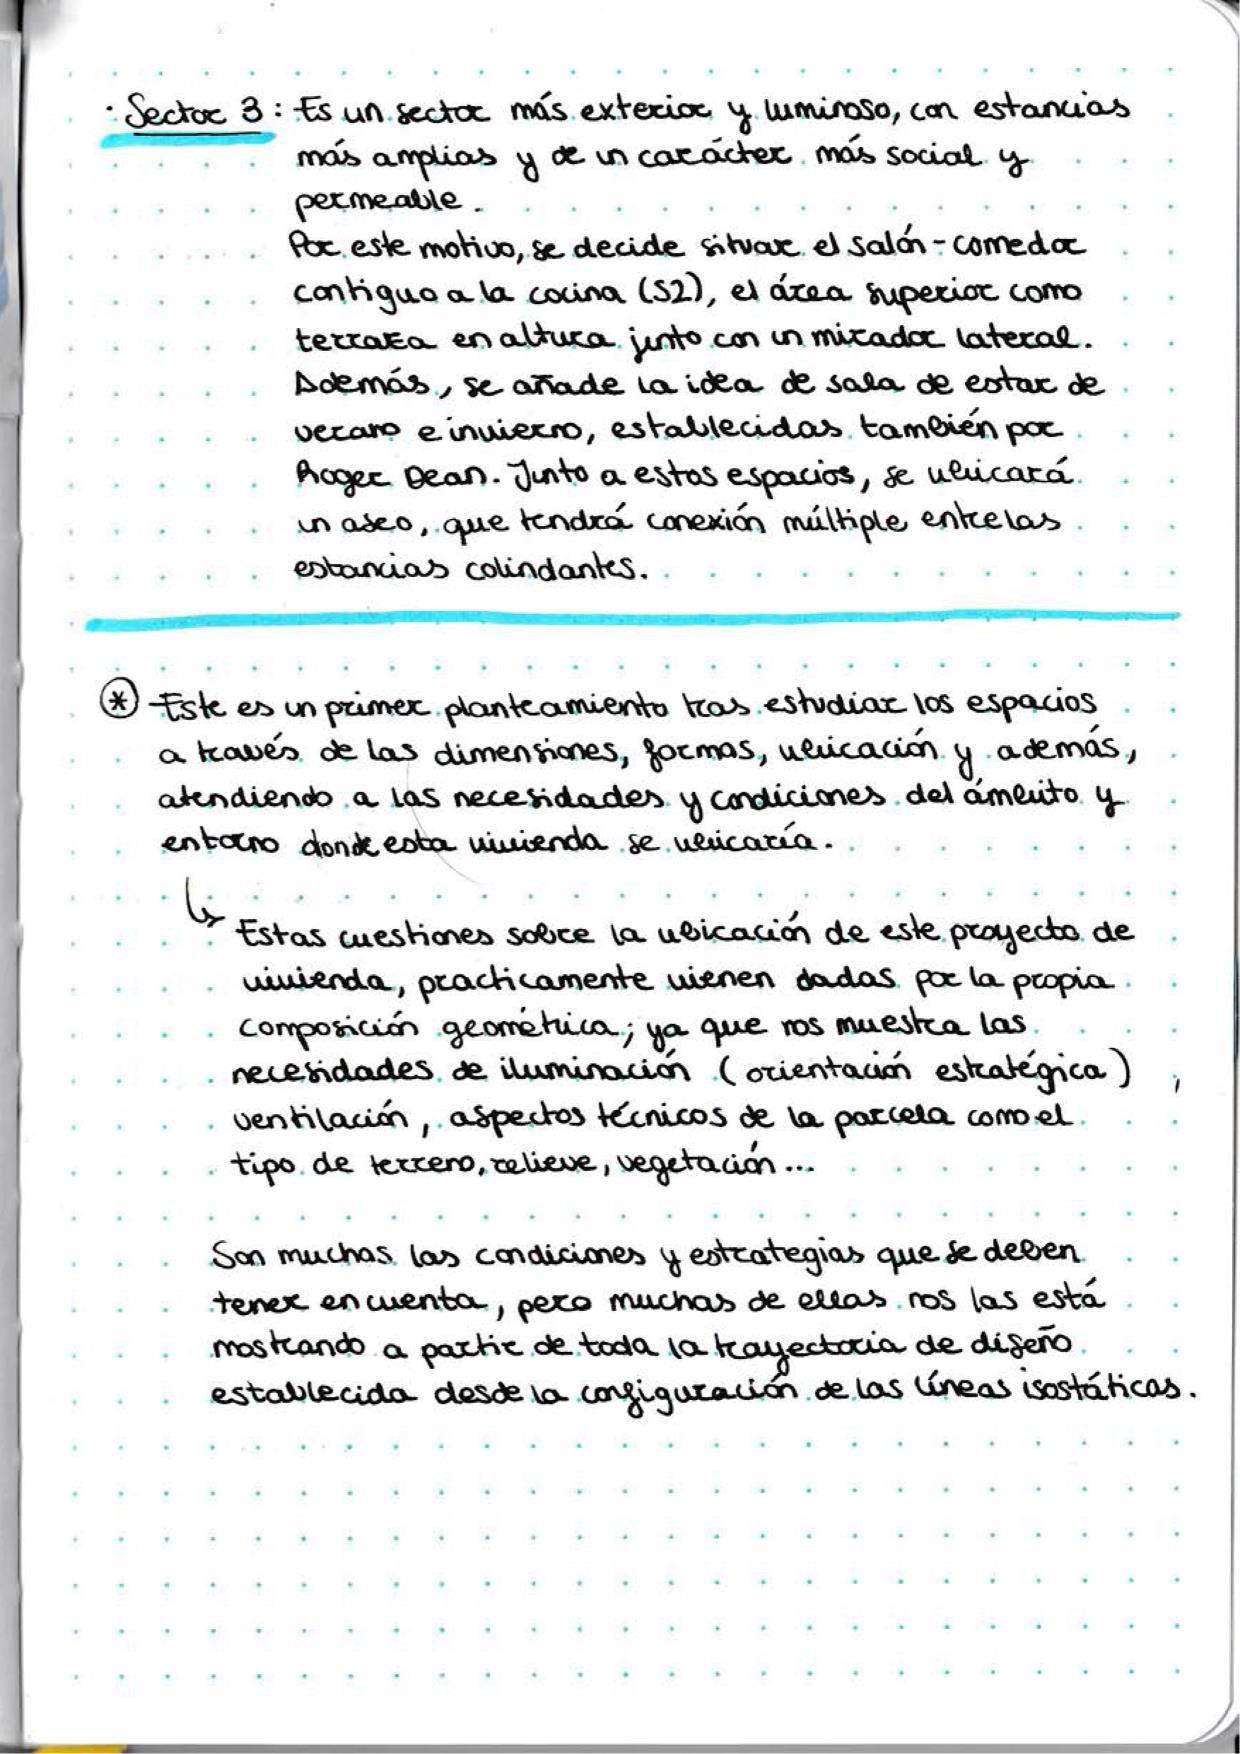 · Sector 3: Es un sector más exterior y luminoso, con estancias
más amplias y de un carácter más social y
permeable.
Por este motivo, se decide situar el salón-comedor
contiguo a la cocina (S2), el área superior como
terraza en altura junto con un mirador lateral.
Además, se añade la idea de sala de estar de
verano e invierno, establecidas también por
Roger Dean. Junto a estos espacios, se ubicará
un aseo, que tendrá conexión múltiple entre las
estancias colindantes.
* Este es un primer planteamiento tras estudiar los espacios
a través de las dimensiones, formas, ubicación y además,
atendiendo a las necesidades y condiciones del ámbito y
entorno donde esta vivienda se ubicaría.
↳ Estas cuestiones sobre la ubicación de este proyecto de
vivienda, practicamente vienen dadas por la propia
composición geométrica; ya que nos muestra las
necesidades de iluminación (orientación estratégica),
ventilación, aspectos técnicos de la parcela como el
tipo de terreno, relieve, vegetación...
Son muchas las condiciones y estrategias que se deben
tener en cuenta, pero muchas de ellas nos las está
mostrando a partir de toda la trayectoria de diseño
establecida desde la configuración de las líneas isostáticas.